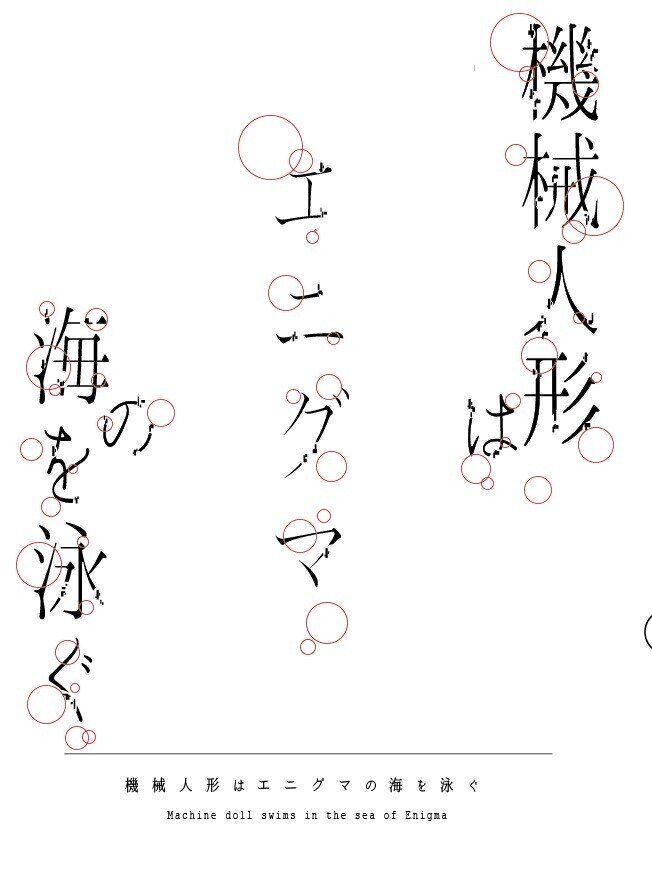 機械人形
は
エニグマ
の
海を泳ぐ
機械人形はエニグマの海を泳ぐ
Machine doll swims in the sea of Enigma